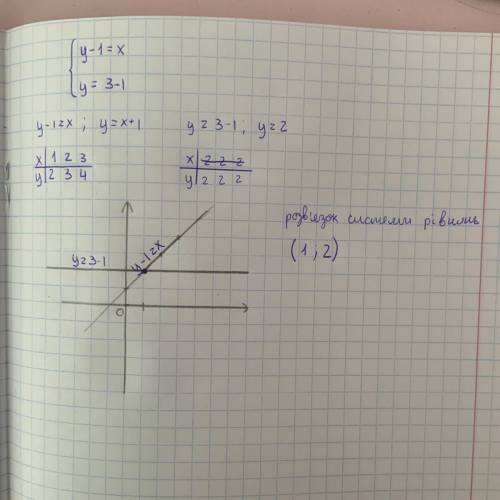 y-1=x
y= 3-1
y-1=x ; y=x+1 y=3-1; y=2
x 1 2 3 x 2 2 2
y 2 3 4 y 2 2 2
розв'язок системи рівнянь
(1;2)
y=3-1 y-1=x
0 1